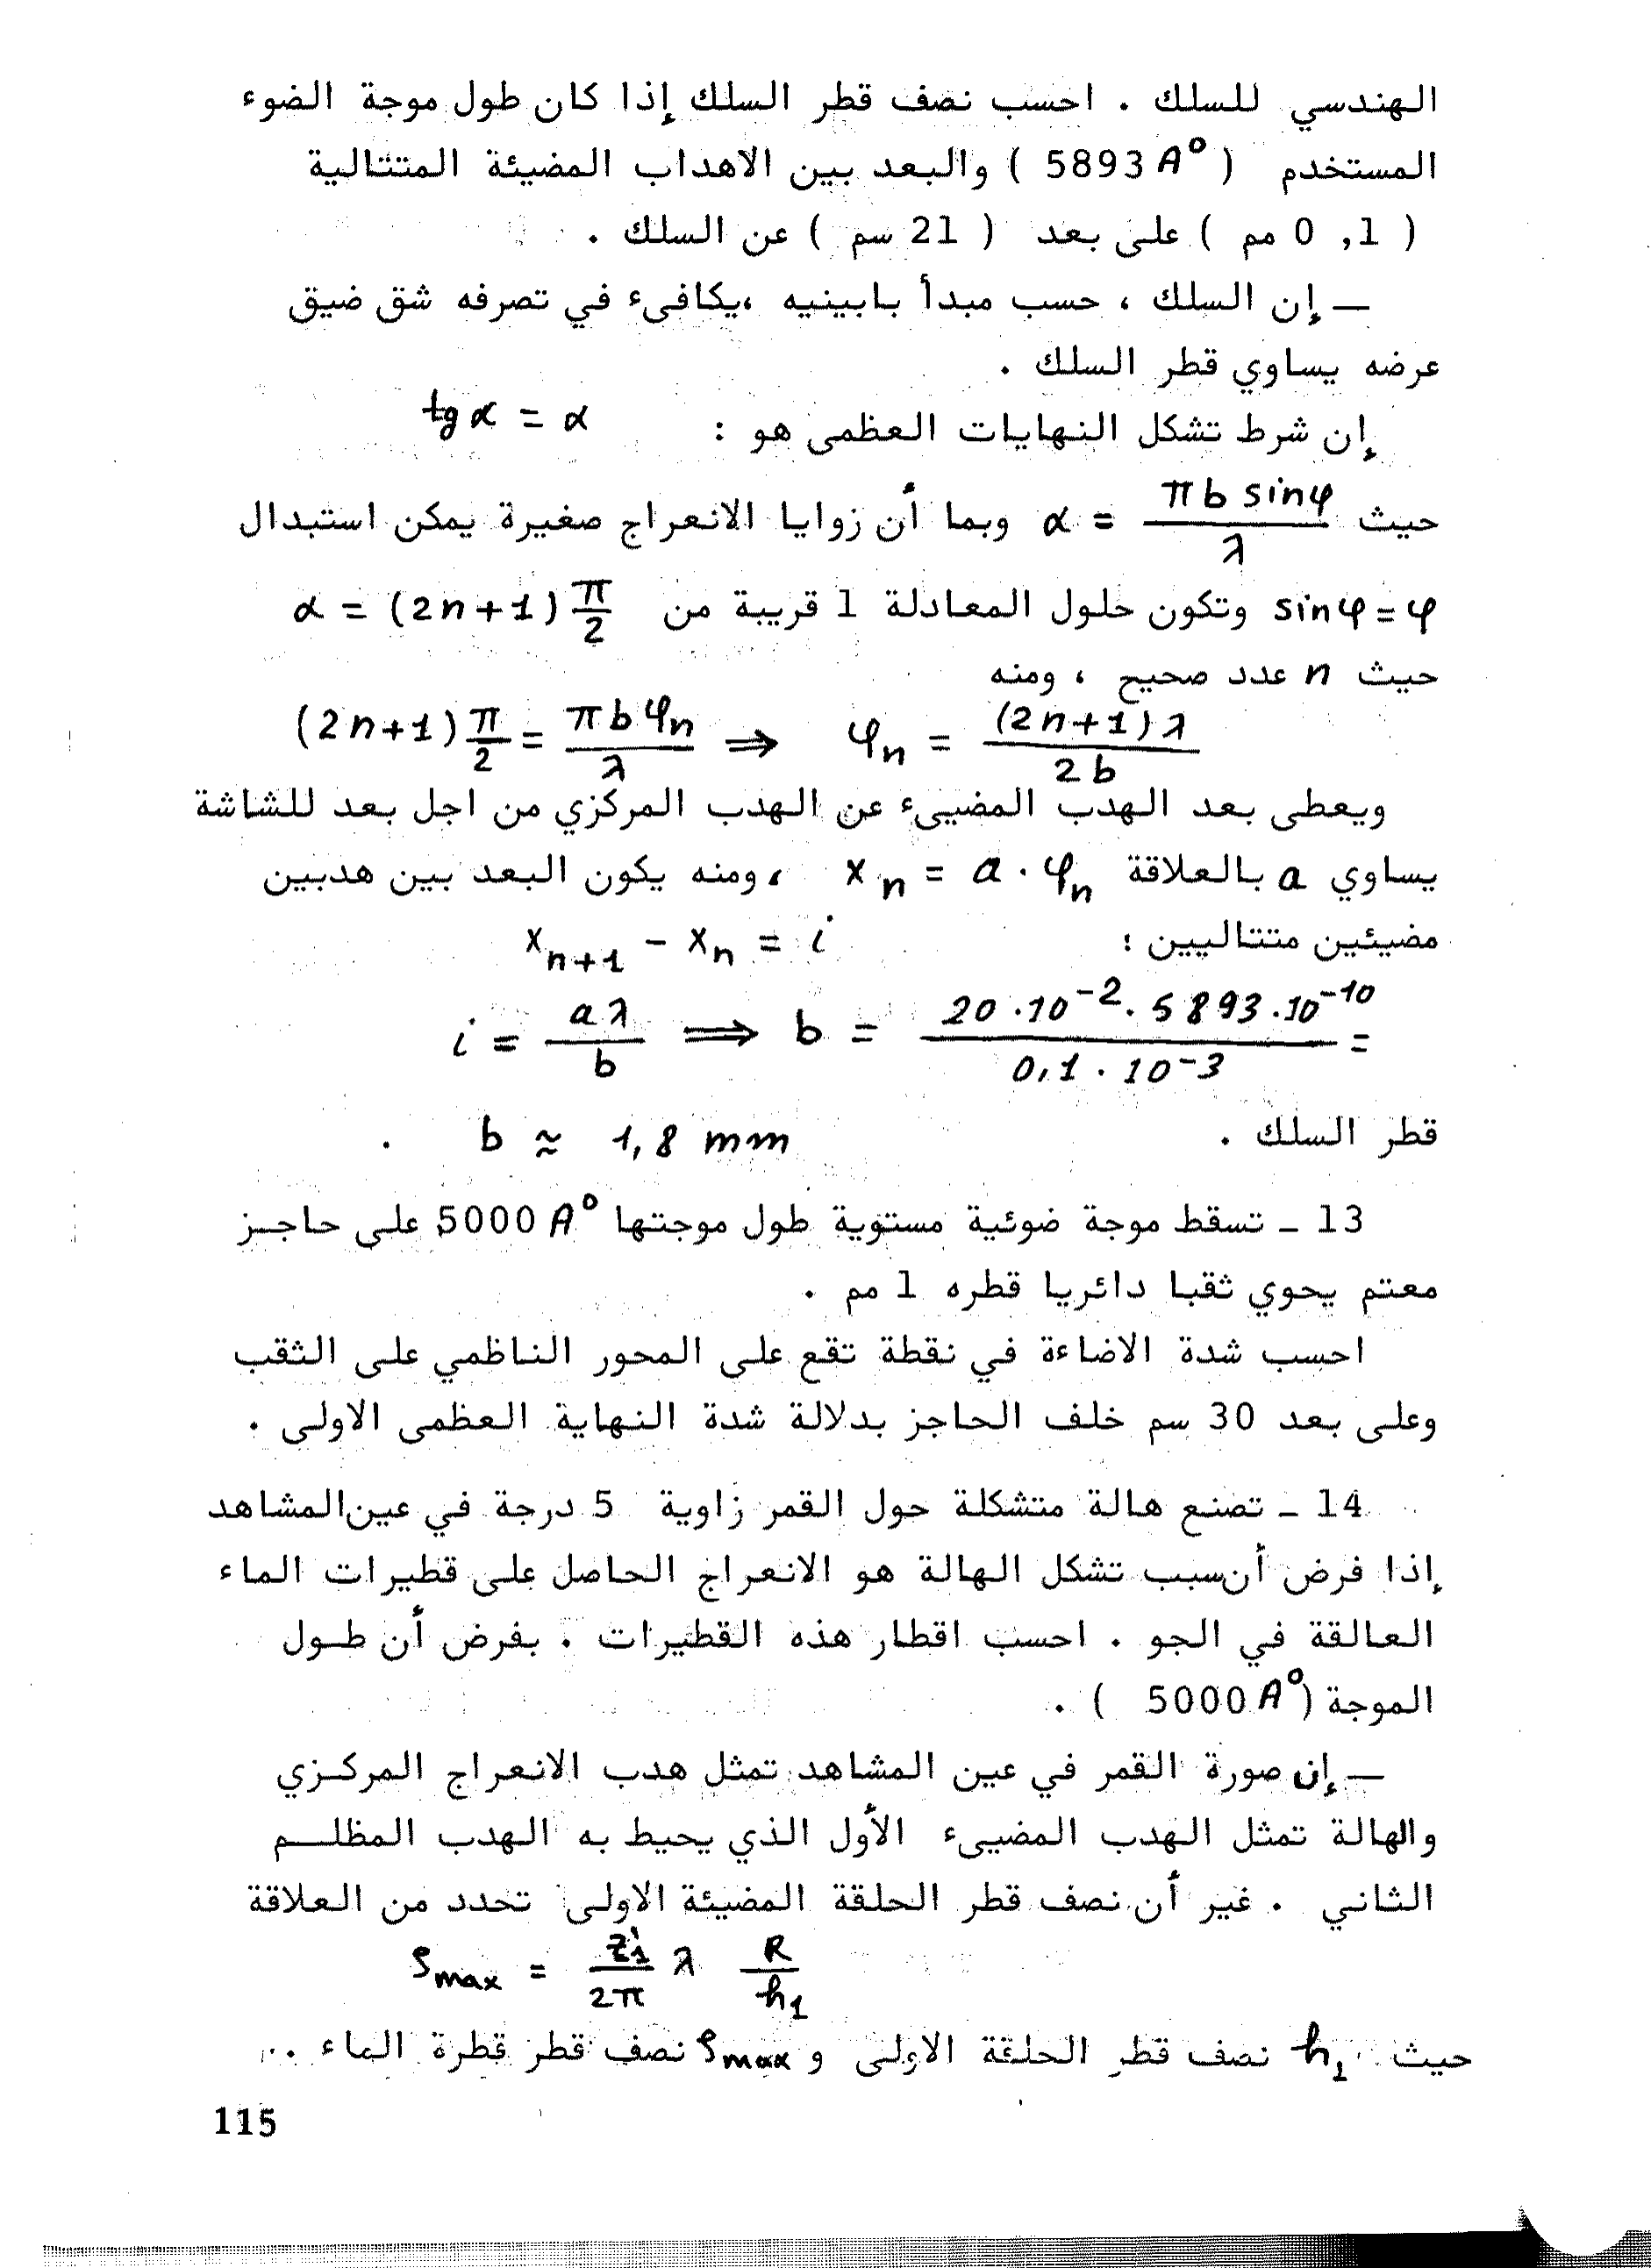 الهندسي للسلك . احسب نصف قطر السلك إذا كان طول موجة الضوء
المستخدم ( 5893 A° ) والبعد بين الاهداب المضيئة المتتالية
( 0 ,1 مم ) على بعد ( 21 سم ) عن السلك .
— إن السلك ، حسب مبدأ بابينيه ،يكافىء في تصرفه شق ضيق
عرضه يساوي قطر السلك .
إن شرط تشكل النهايات العظمى هو : tg α = α
حيث α = π b sin φ / λ وبما أن زوايا الانعراج صغيرة يمكن استبدال
sin φ = φ وتكون حلول المعادلة 1 قريبة من α = (2n+1) π/2
حيث n عدد صحيح ، ومنه
(2n+1) π/2 = π b φn / λ ⇒ φn = (2n+1) λ / 2b
ويعطى بعد الهدب المضيىء عن الهدب المركزي من اجل بعد للشاشة
يساوي a بالعلاقة xn = a . φn ، ومنه يكون البعد بين هدبين
مضيئين متتاليين : xn+1 − xn = i
i = a λ / b ⇒ b = 20 .10^-2 . 5893 .10^-10 / 0,1 . 10^-3 =
قطر السلك . b ≈ 1,8 mm .
13 - تسقط موجة ضوئية مستوية طول موجتها 5000 A° على حاجز
معتم يحوي ثقبا دائريا قطره 1 مم .
احسب شدة الاضاءة في نقطة تقع على المحور الناظمي على الثقب
وعلى بعد 30 سم خلف الحاجز بدلالة شدة النهاية العظمى الاولى .
14 - تصنع هالة متشكلة حول القمر زاوية 5 درجة في عين المشاهد
إذا فرض أن سبب تشكل الهالة هو الانعراج الحاصل على قطيرات الماء
العالقة في الجو . احسب اقطار هذه القطيرات . بفرض أن طول
الموجة ( 5000 A° ) .
— إن صورة القمر في عين المشاهد تمثل هدب الانعراج المركزي
والهالة تمثل الهدب المضيىء الأول الذي يحيط به الهدب المظلم
الثاني . غير أن نصف قطر الحلقة المضيئة الاولى تحدد من العلاقة
ρmax = z'1 / 2π λ R / h1
حيث h1 نصف قطر الحلقة الاولى و ρmax نصف قطر قطرة الماء ..
115